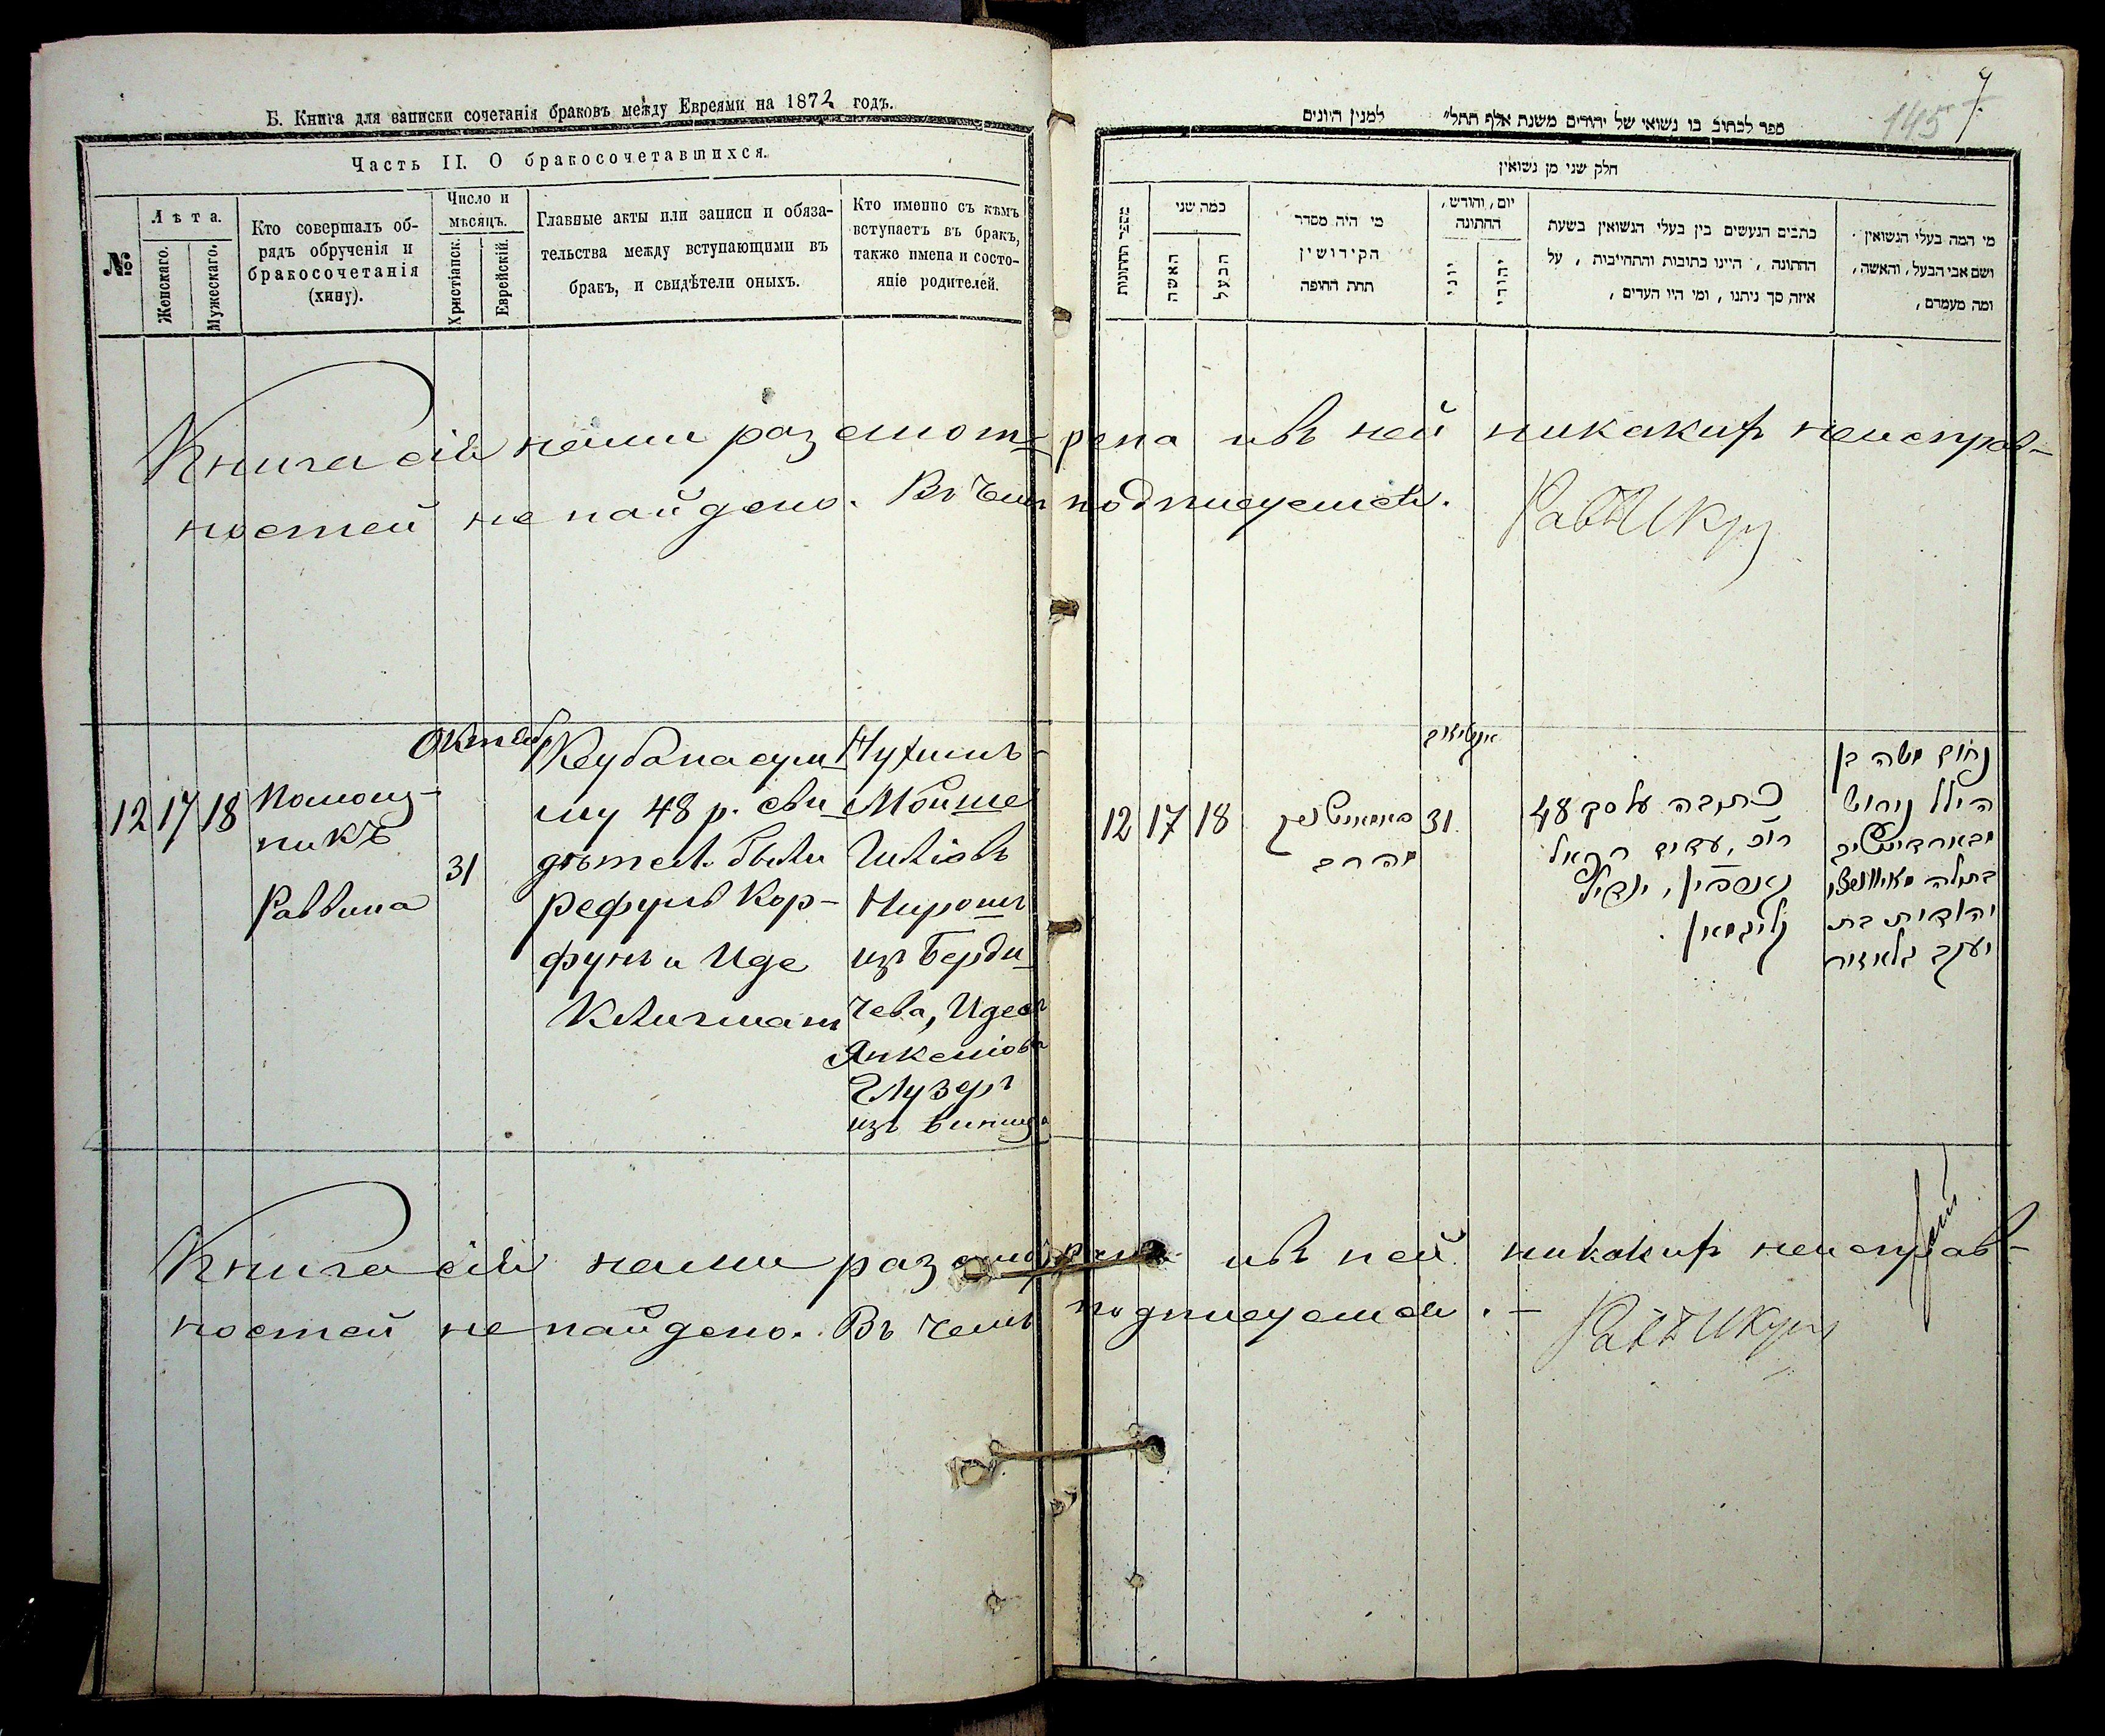 Б. Книга для записки сочетанія браковъ между Евреями на 1872 годъ.
Часть II. О бракосочетавшихся.
№
Лѣта.
Женскаго.
Мужескаго.
Кто совершалъ об-
рядъ обрученія и
бракосочетанія
(хипу).
Число и
мѣсяцъ.
Христіанск.
Еврейскій.
Главные акты или записи и обяза-
тельства между вступающими въ
бракъ, и свидѣтели оныхъ.
Кто именно съ кѣмъ
вступаетъ въ бракъ,
также имена и состо-
яніе родителей.
145
7
ספר לכתוב בו נשואי של יהודים משנת אלף תתל״ למנין היונים
חלק שני מן נשואין
מספר החתונות
כמה שני
האשה
הבעל
מי היה מסדר
הקידושין
תחת החופה
יום, וחודש,
החתונה
יוני
יהודי
כתבים הנעשים בין בעלי הנשואין בשעת
החתונה, היינו כתובות והתחייבות, על
איזה סך ניתנו, ומי היו העדים,
מי המה בעלי הנשואין
ושם אבי הבעל, והאשה,
ומה מעמדם,
Книга сія нами разсмотрена и въ ней никакихъ неисправ-
ностей не найдено. Въ чемъ подписуемся.
Рав
12 17 18
Помощ-
никъ
Раввина
31
Кеуба на сум-
му 48 р. сви-
дѣтел. были
Рефулъ Кор-
фунъ и Иде
Клигман
Нухимъ
Мойше
Гиліовъ
Нирошъ
изъ Берди-
чева,
Янкеліовъ
Глузеръ
12 17 18
31
כתובה על סך 48
רו״כ, עדים רפאל
קליגמאן
נחום משה בן
הילל נירוש
מבארדיטשוב
בתולה
יהודית בת
יעקב גלאזיר
Книга сія нами разсмотрена и въ ней никакихъ неисправ-
ностей не найдено. Въ чемъ подписуемся. -